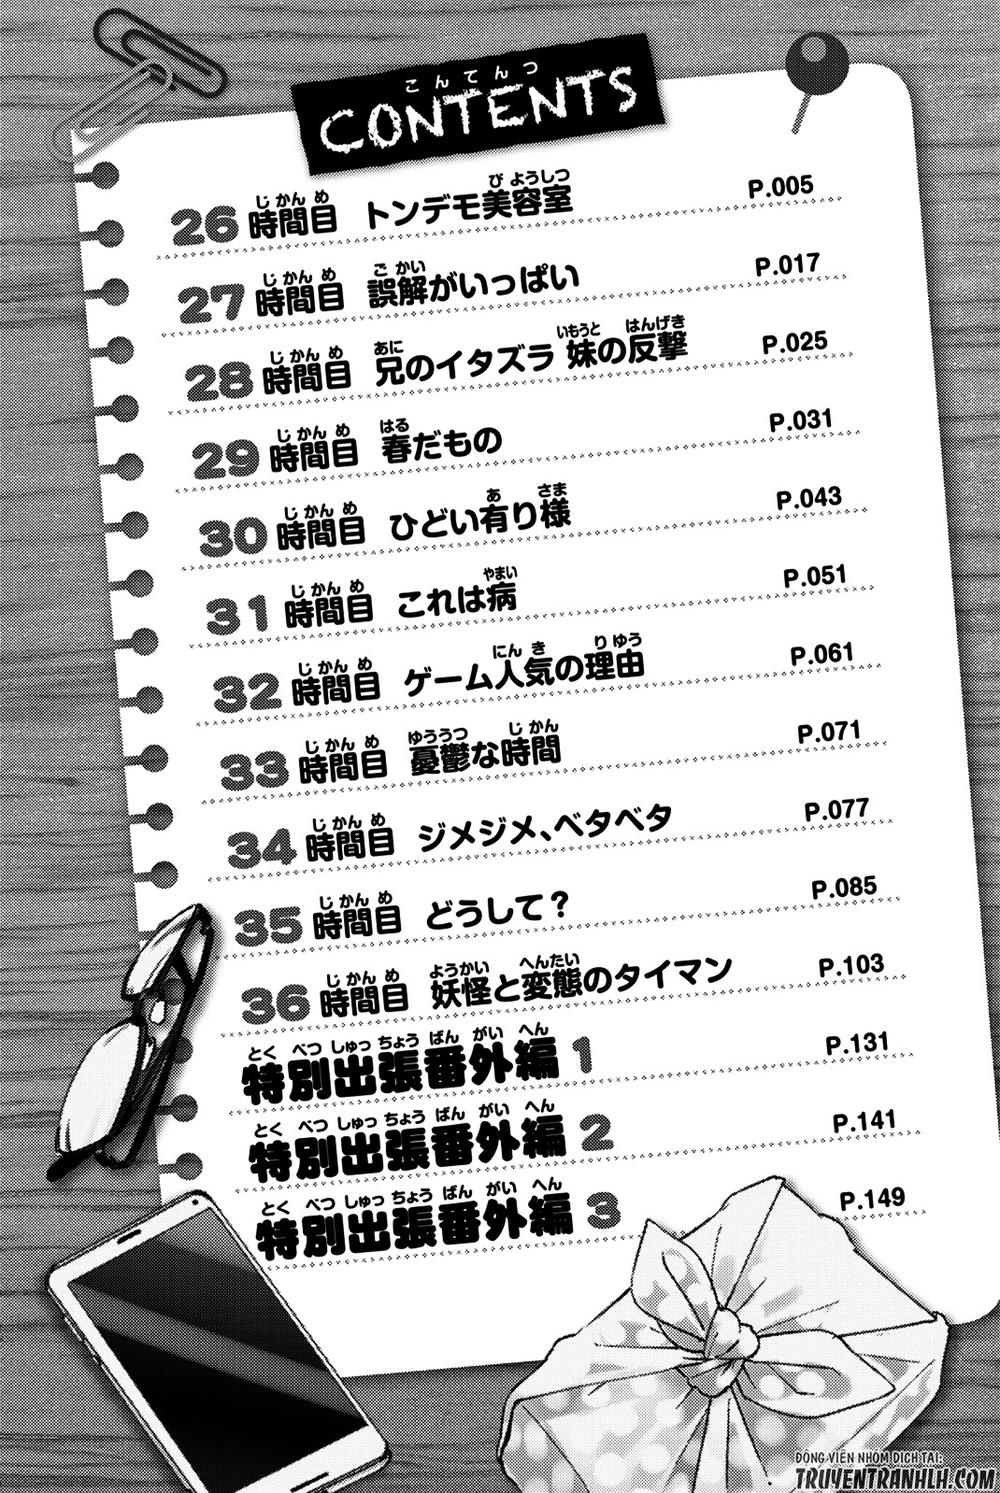 こんてんつ
CONTENTS
じかんめ びようしつ
26時間目 トンデモ美容室 P.005
じかんめ ごかい
27時間目 誤解がいっぱい P.017
じかんめ あに いもうと はんげき
28時間目 兄のイタズラ 妹の反撃 P.025
じかんめ はる
29時間目 春だもの P.031
じかんめ あ さま
30時間目 ひどい有り様 P.043
じかんめ やまい
31時間目 これは病 P.051
じかんめ にんき りゆう
32時間目 ゲーム人気の理由 P.061
じかんめ ゆううつ じかん
33時間目 憂鬱な時間 P.071
じかんめ
34時間目 ジメジメ、ベタベタ P.077
じかんめ
35時間目 どうして? P.085
じかんめ ようかい へんたい
36時間目 妖怪と変態のタイマン P.103
とくべつしゅっちょうばんがいへん
特別出張番外編 1 P.131
とくべつしゅっちょうばんがいへん
特別出張番外編 2 P.141
とくべつしゅっちょうばんがいへん
特別出張番外編 3 P.149
ĐỘNG VIÊN NHÓM DỊCH TẠI:
TRUYENTRANHLH.COM